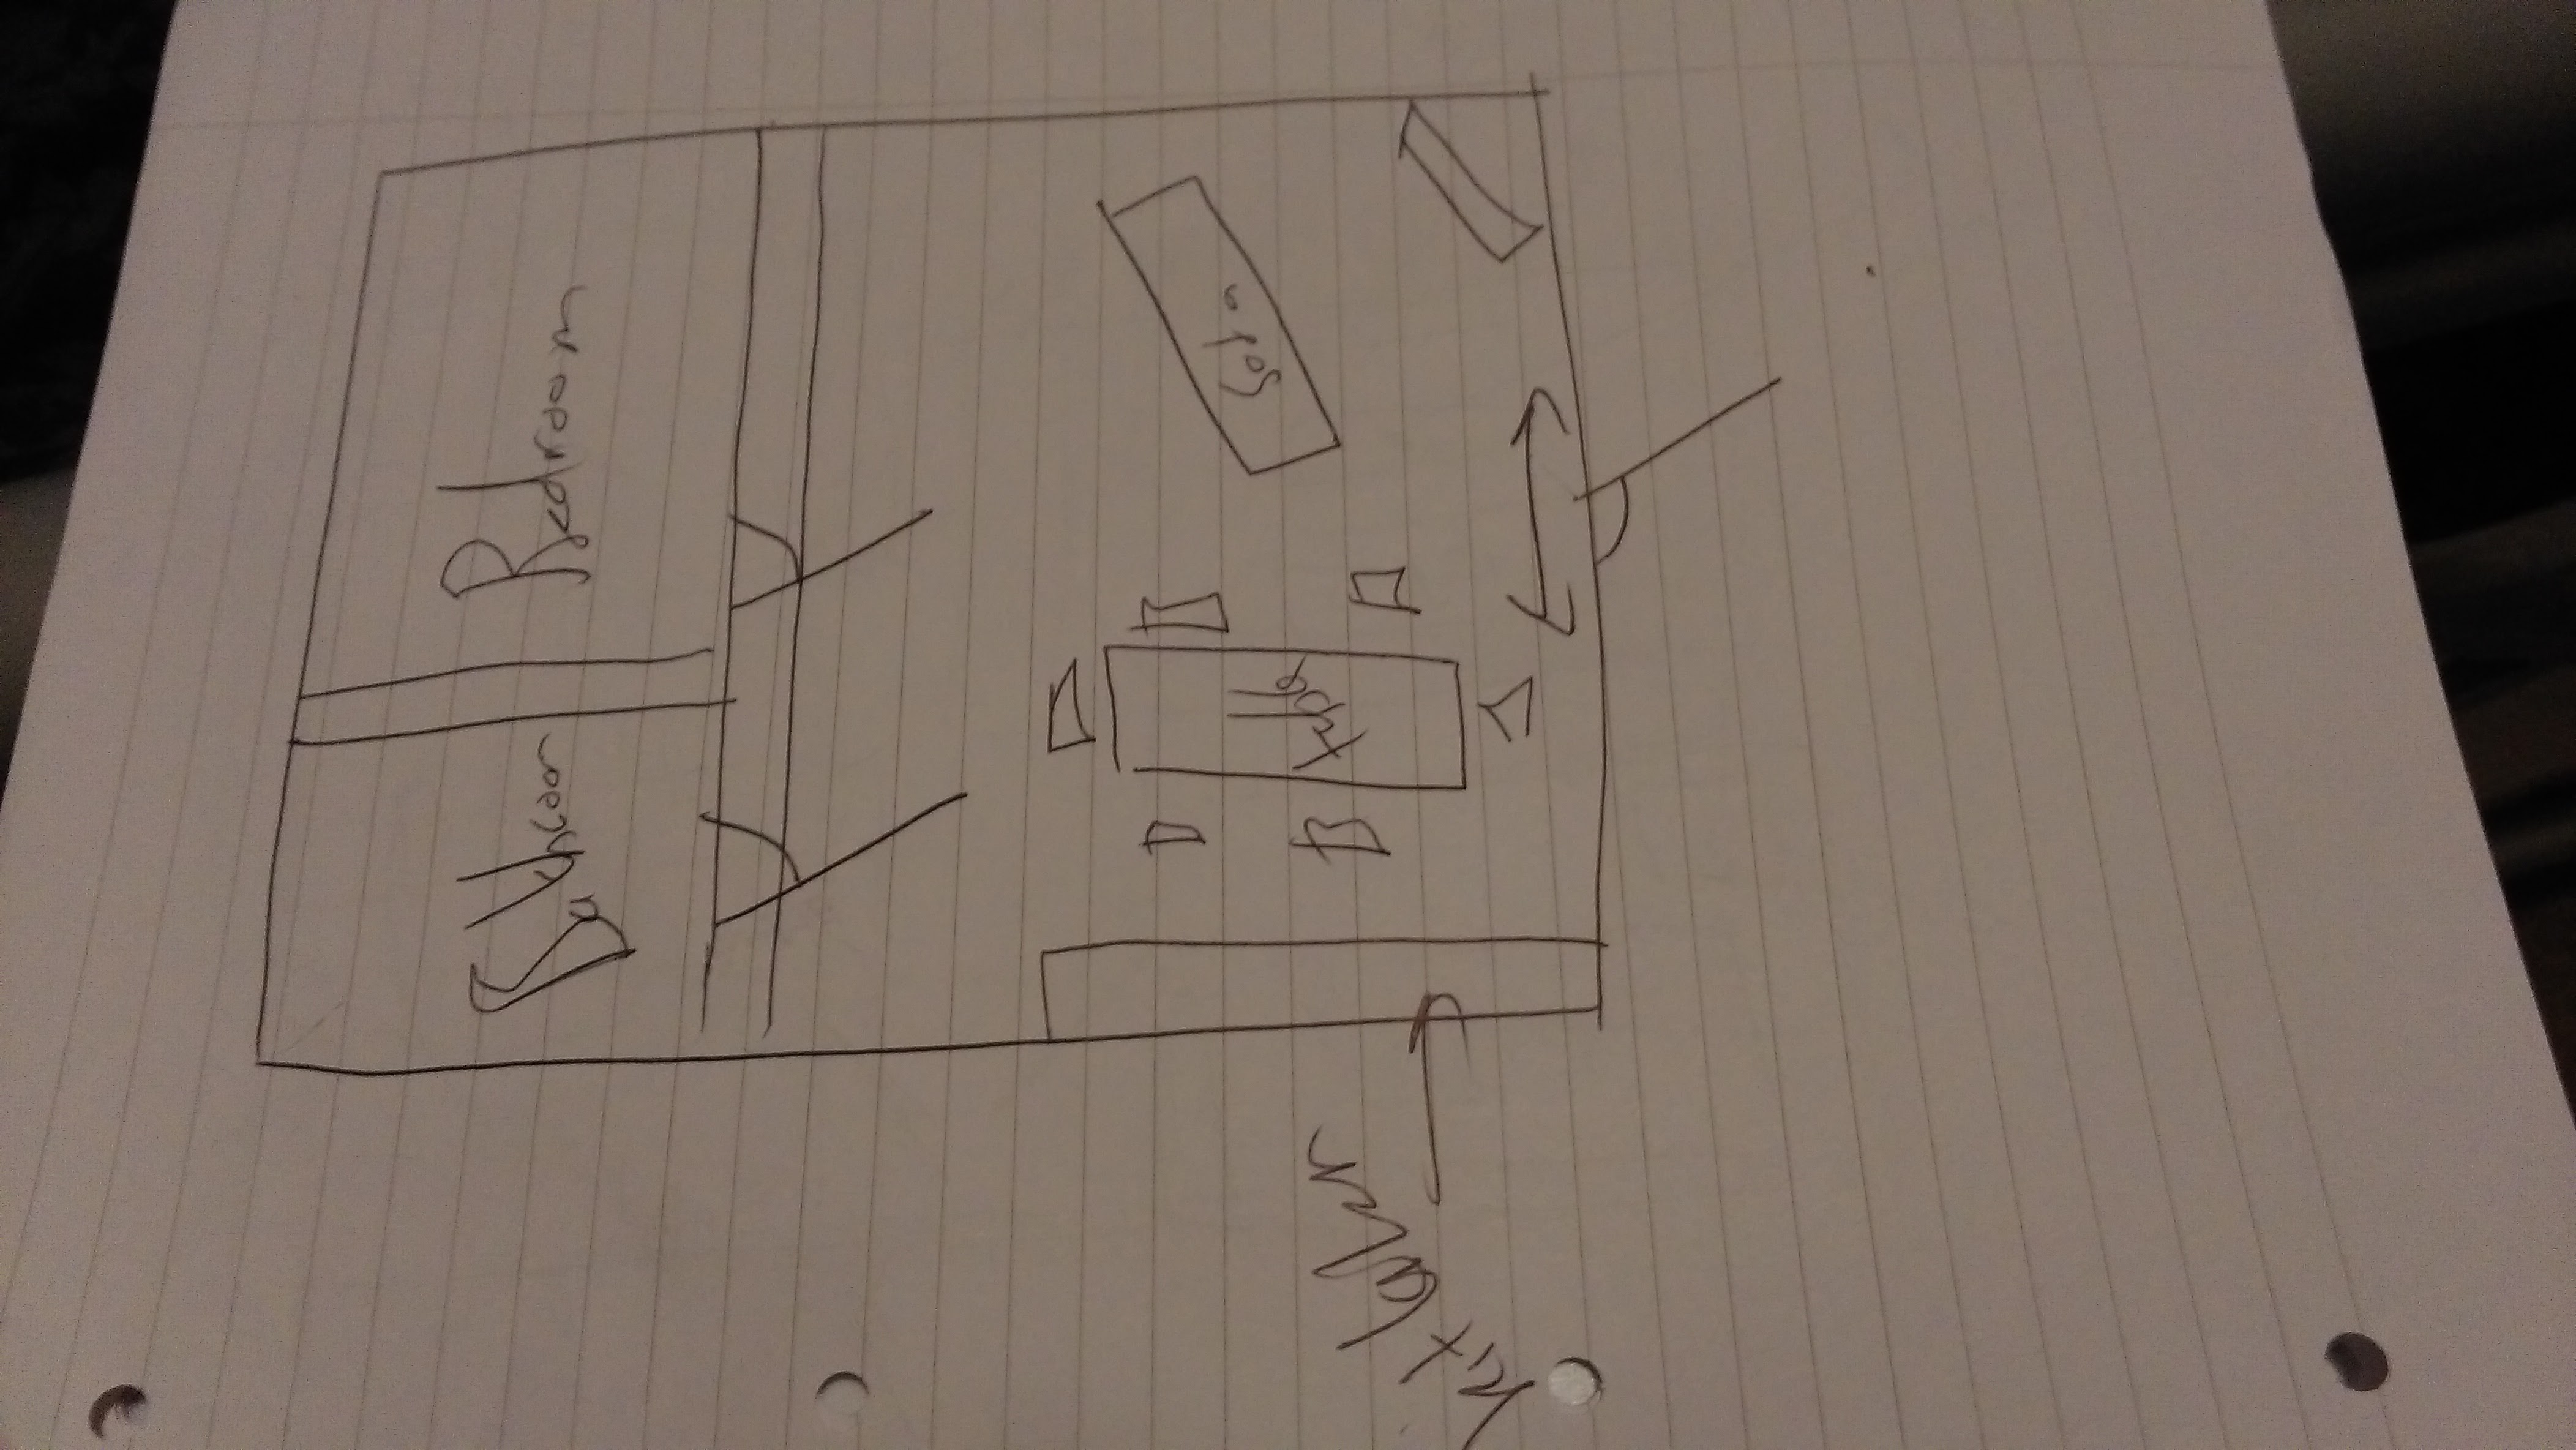 Bathroom
Bedroom
Sofa
Table
kitchen